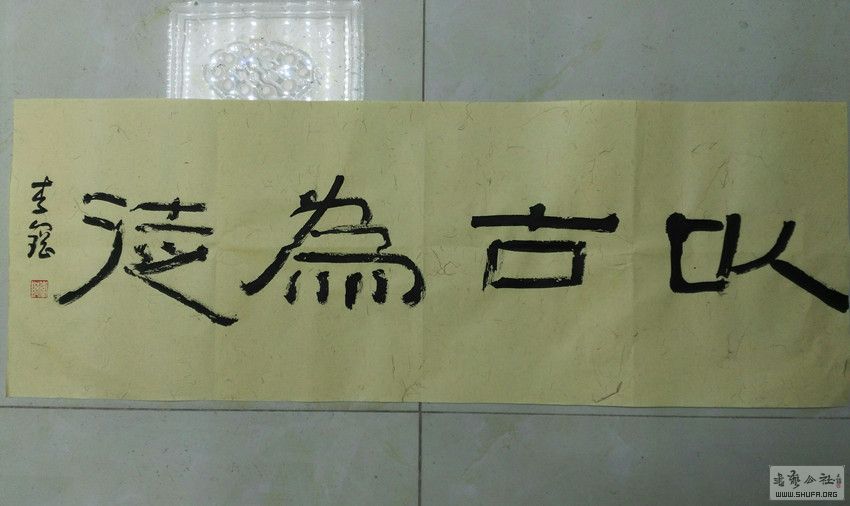 以古為徒
書藝公社
WWW.SHUFA.ORG